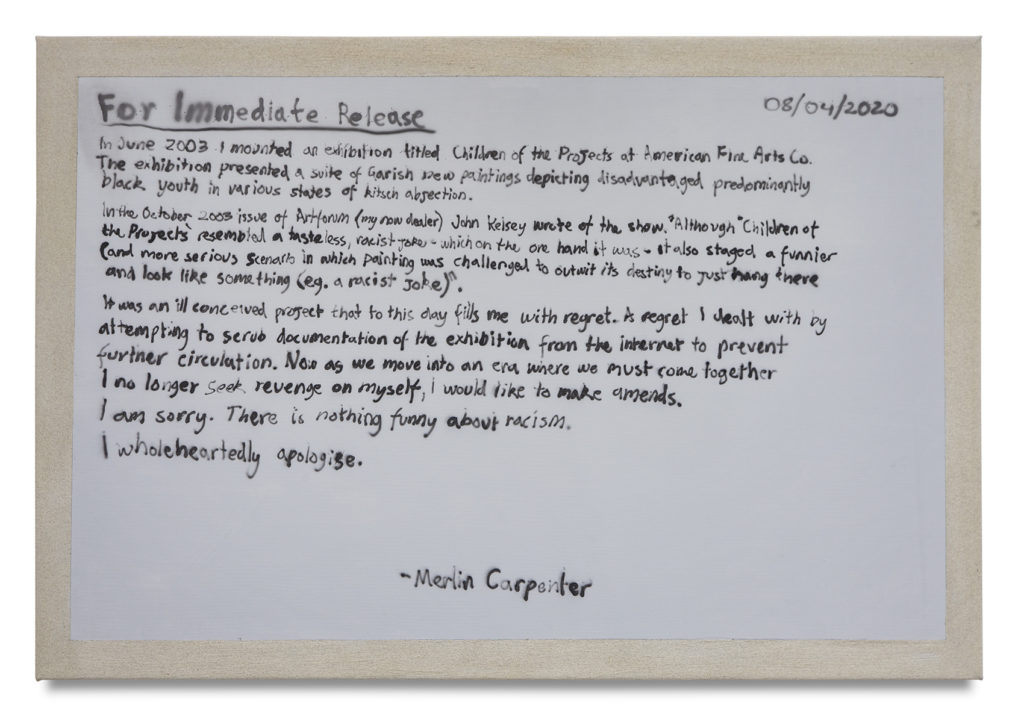 For Immediate Release
08/04/2020
In June 2003 I mounted an exhibition titled Children of the Projects at American Fine Arts Co.
The exhibition presented a suite of Garish new paintings depicting disadvantaged predominantly
black youth in various states of kitsch abjection.
In the October 2003 issue of Artforum (my now dealer) John Kelsey wrote of the show. "Although "Children of
the Projects" resembled a tasteless, racist joke - which on the one hand it was - it also staged a funnier
(and more serious scenario in which painting was challenged to outwit its destiny to just hang there
and look like something (eg. a racist joke)".
It was an ill conceived project that to this day fills me with regret. A regret I dealt with by
attempting to scrub documentation of the exhibition from the internet to prevent
further circulation. Now as we move into an era where we must come together
I no longer seek revenge on myself, i would like to make amends.
I am sorry. There is nothing funny about racism.
I wholeheartedly apologise.
-Merlin Carpenter